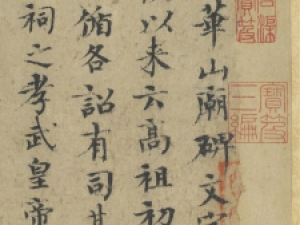 華山廟碑文字
以来六高祖初
脩各詔有司其
祠之孝武皇帝
寶笈
三編